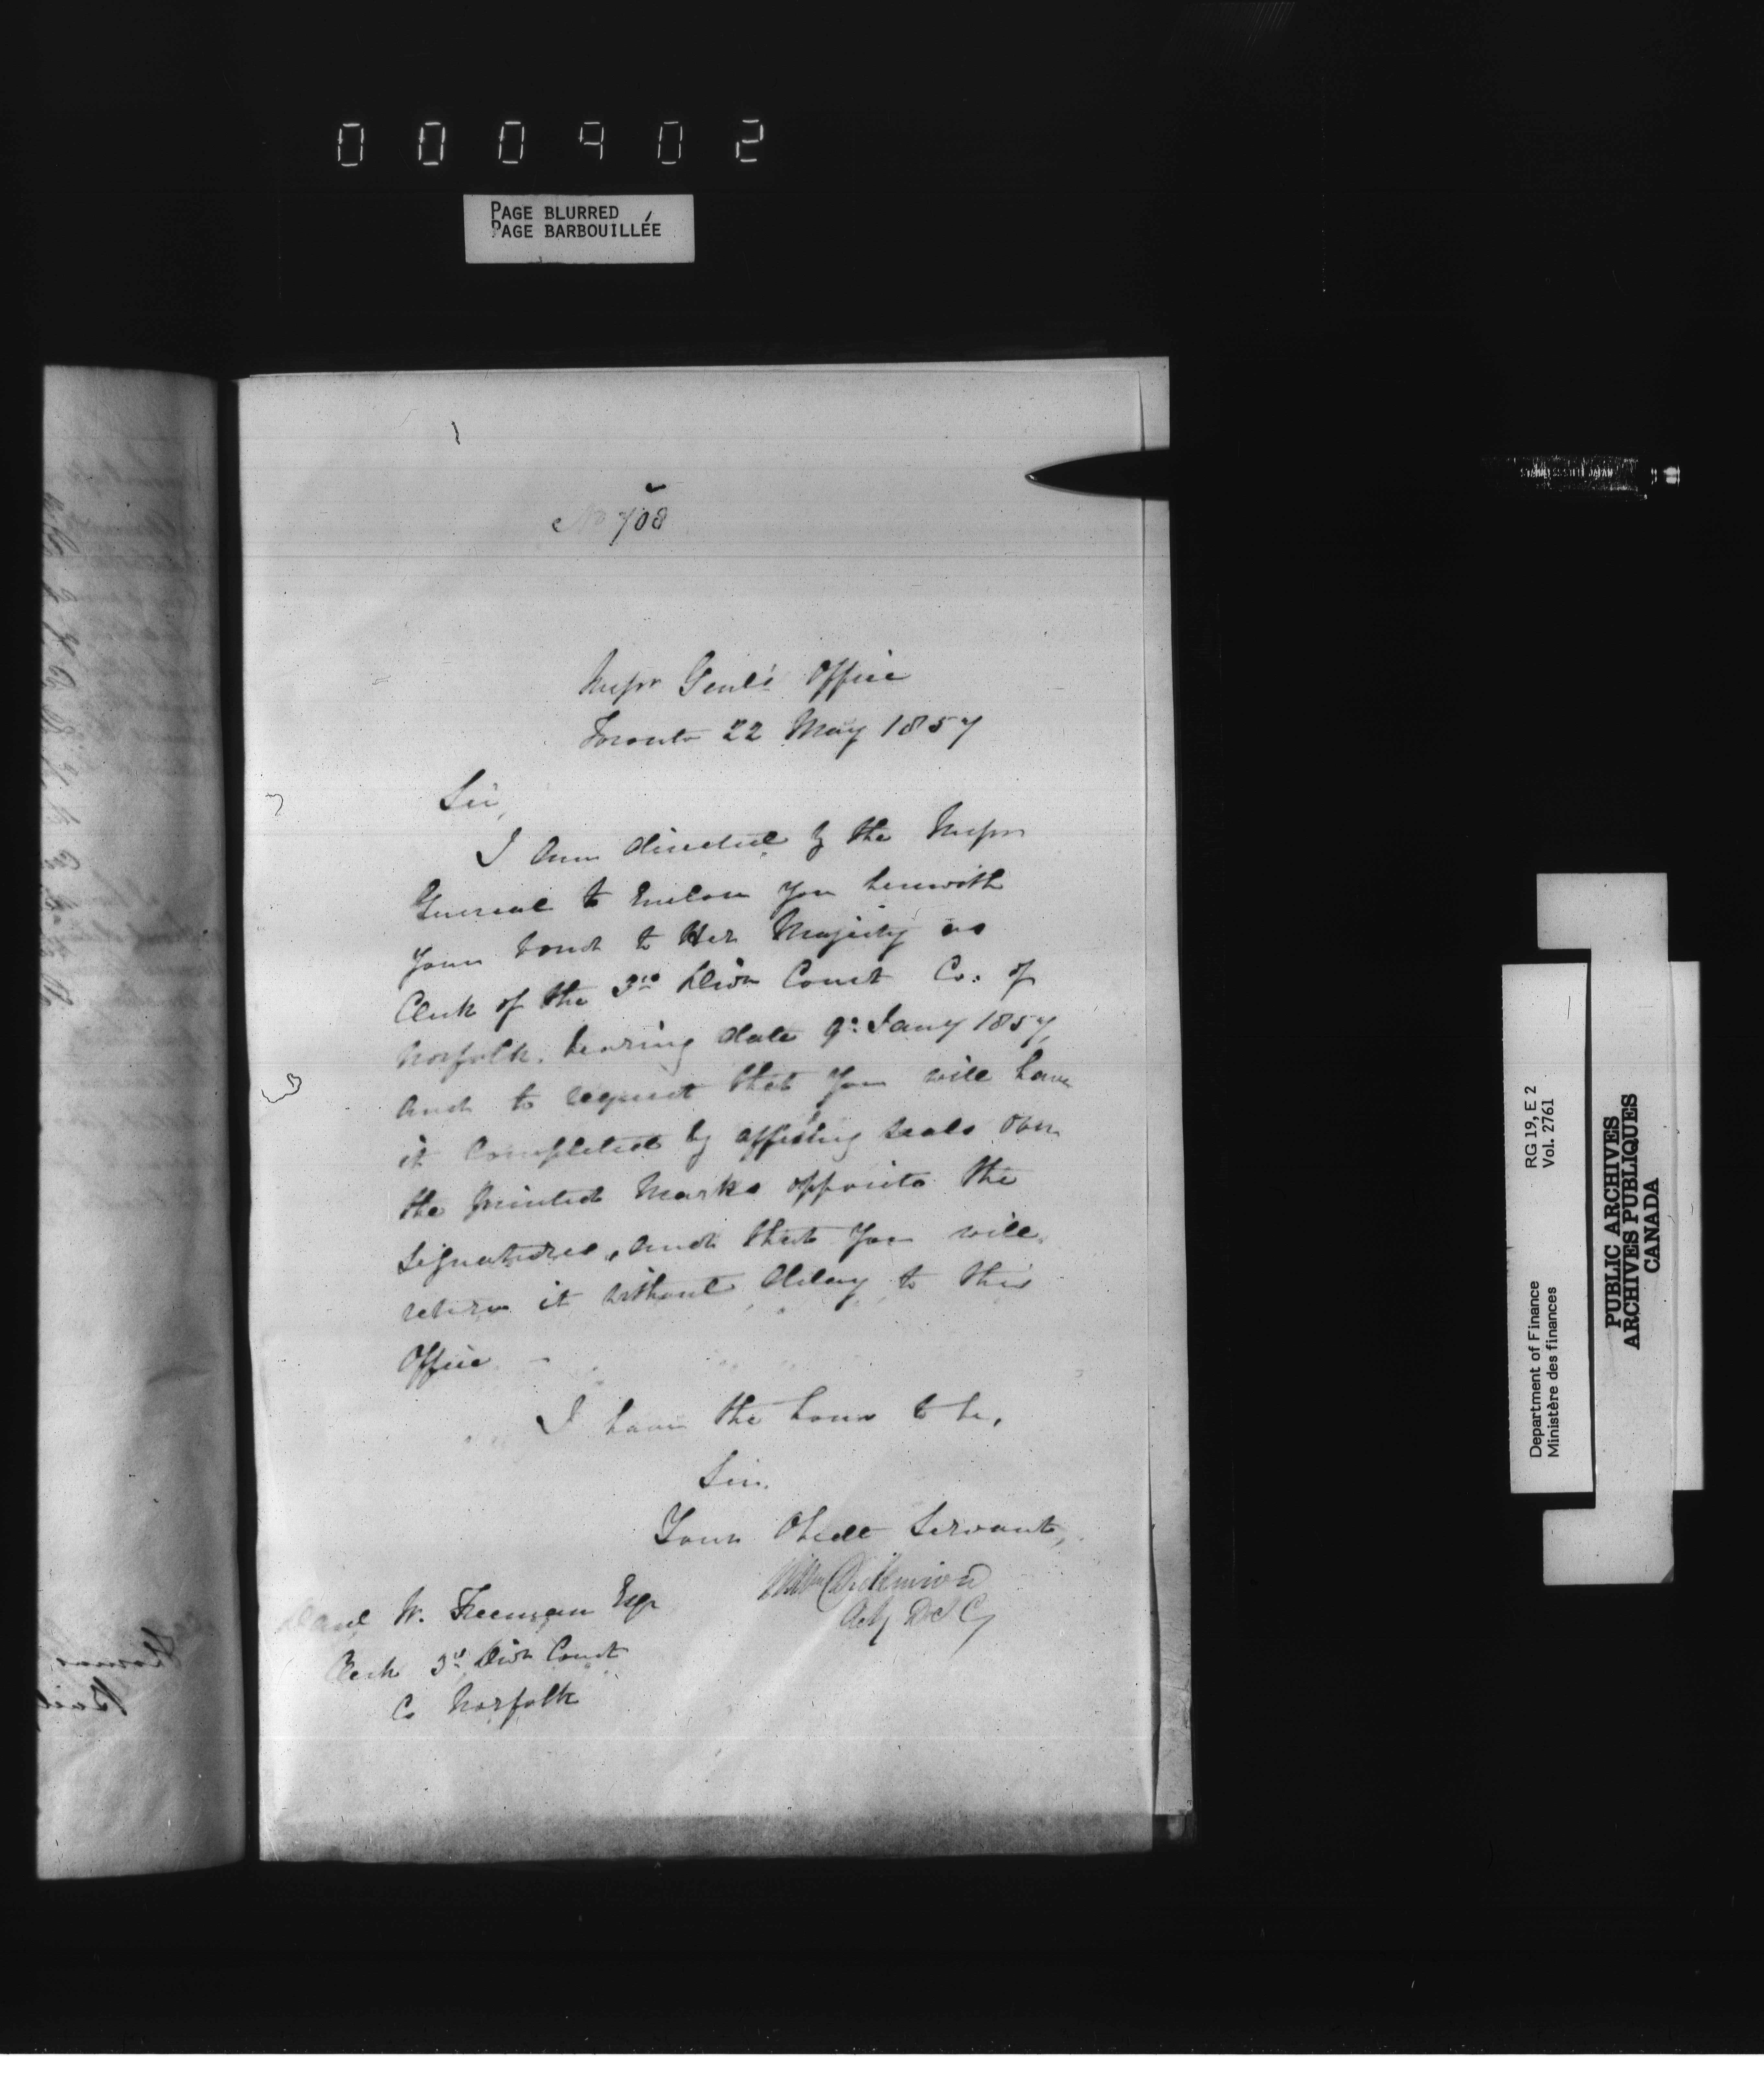 000402
PAGE BLURRED
PAGE BARBOUILLÉE
No 708
Inspr Genl's Office
Toronto 22 May 1857
Sir,
I am directed by the Inspr
General to Enclose you herewith
your bond to Her Majesty as
Clerk of the 3rd Divn Court Co: of
Norfolk, bearing date 9: Jany 1857,
and to request that you will have
it completed by affixing seals over
the printed Marks opposite the
signatures, and that you will
return it without delay to this
Office –
I have the honor to be,
Sir,
Your Obedt Servant,
Wm Dickinson
Actg D I G
W. Freeman Esqr
Clerk 3d Divn Court
Co Norfolk
Department of Finance RG 19, E 2
Ministère des finances Vol. 2761
PUBLIC ARCHIVES
ARCHIVES PUBLIQUES
CANADA